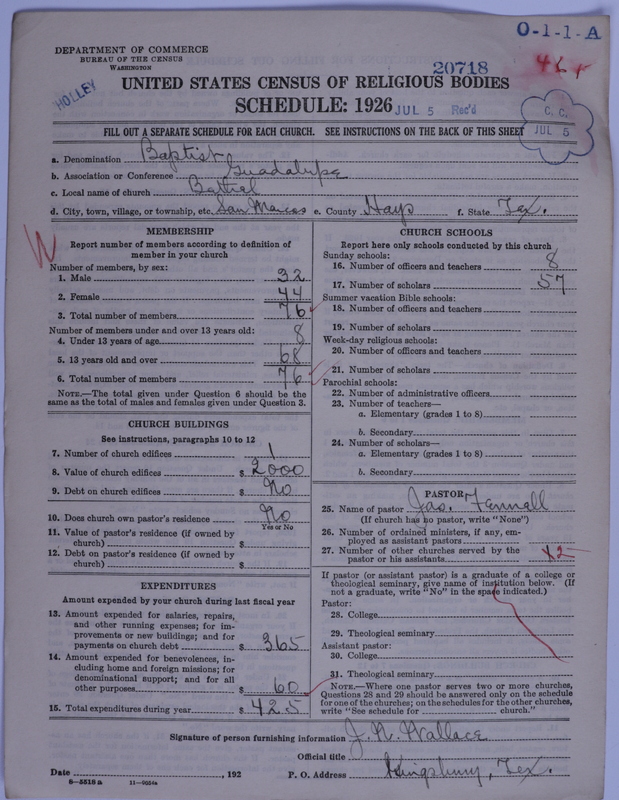 O-1-1-A
DEPARTMENT OF COMMERCE
BUREAU OF THE CENSUS
WASHINGTON
20718
HOLLEY
UNITED STATES CENSUS OF RELIGIOUS BODIES
SCHEDULE: 1926 JUL 5 Rec'd
C. C.
JUL 5
FILL OUT A SEPARATE SCHEDULE FOR EACH CHURCH. SEE INSTRUCTIONS ON THE BACK OF THIS SHEET
a. Denomination Baptist
b. Association or Conference Guadalupe
c. Local name of church
d. City, town, village, or township, etc. San Marcos e. County Hays f. State Tex.
MEMBERSHIP
Report number of members according to definition of
member in your church
Number of members, by sex:
1. Male 32
2. Female 44
3. Total number of members 76
Number of members under and over 13 years old:
4. Under 13 years of age 8
5. 13 years old and over 68
6. Total number of members 76
NOTE.—The total given under Question 6 should be
same as the total of males and females given under Question 3.
CHURCH BUILDINGS
See instructions, paragraphs 10 to 12
7. Number of church edifices 1
8. Value of church edifices $ 2000
9. Debt on church edifices $ No
10. Does church own pastor's residence No
Yes or No
11. Value of pastor's residence (if owned by
church) $
12. Debt on pastor's residence (if owned by
church) $
EXPENDITURES
Amount expended by your church during last fiscal year
13. Amount expended for salaries, repairs,
and other running expenses; for im-
provements or new buildings; and for
payments on church debt $ 365
14. Amount expended for benevolences, in-
cluding home and foreign missions; for
denominational support; and for all
other purposes $ 60
15. Total expenditures during year $ 425
CHURCH SCHOOLS
Report here only schools conducted by this church
Sunday schools:
16. Number of officers and teachers 8
17. Number of scholars 57
Summer vacation Bible schools:
18. Number of officers and teachers
19. Number of scholars
Week-day religious schools:
20. Number of officers and teachers
21. Number of scholars
Parochial schools:
22. Number of administrative officers
23. Number of teachers—
a. Elementary (grades 1 to 8)
b. Secondary
24. Number of scholars—
a. Elementary (grades 1 to 8)
b. Secondary
PASTOR
25. Name of pastor Jas. Fennell
(If church has no pastor, write "None")
26. Number of ordained ministers, if any, em-
ployed as assistant pastors
27. Number of other churches served by the
pastor or his assistants 2
If pastor (or assistant pastor) is a graduate of a college or
theological seminary, give name of institution below. (If
not a graduate, write "No" in the space indicated.)
Pastor:
28. College
29. Theological seminary
Assistant pastor:
30. College
31. Theological seminary
NOTE.—Where one pastor serves two or more churches,
Questions 28 and 29 should be answered only on the schedule
for one of the churches; on the schedules for the other churches,
write "See schedule for church."
Signature of person furnishing information J. N. Wallace
Official title
Date , 192 P. O. Address Kingsbury, Tex.
8—5518 a 11—9054a